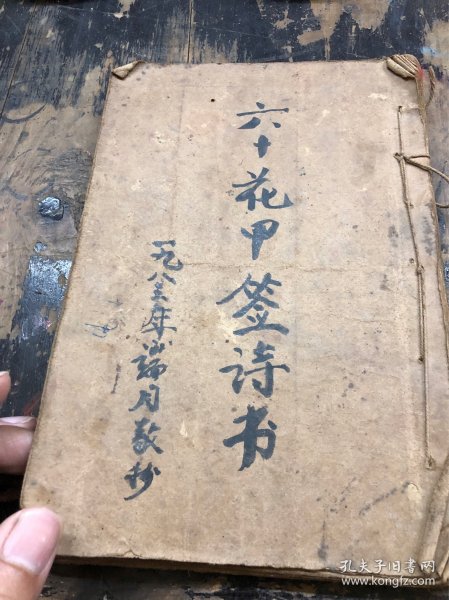 六十花甲签诗书
一九八三年端月敬抄
孔夫子旧书网
www.kongfz.com